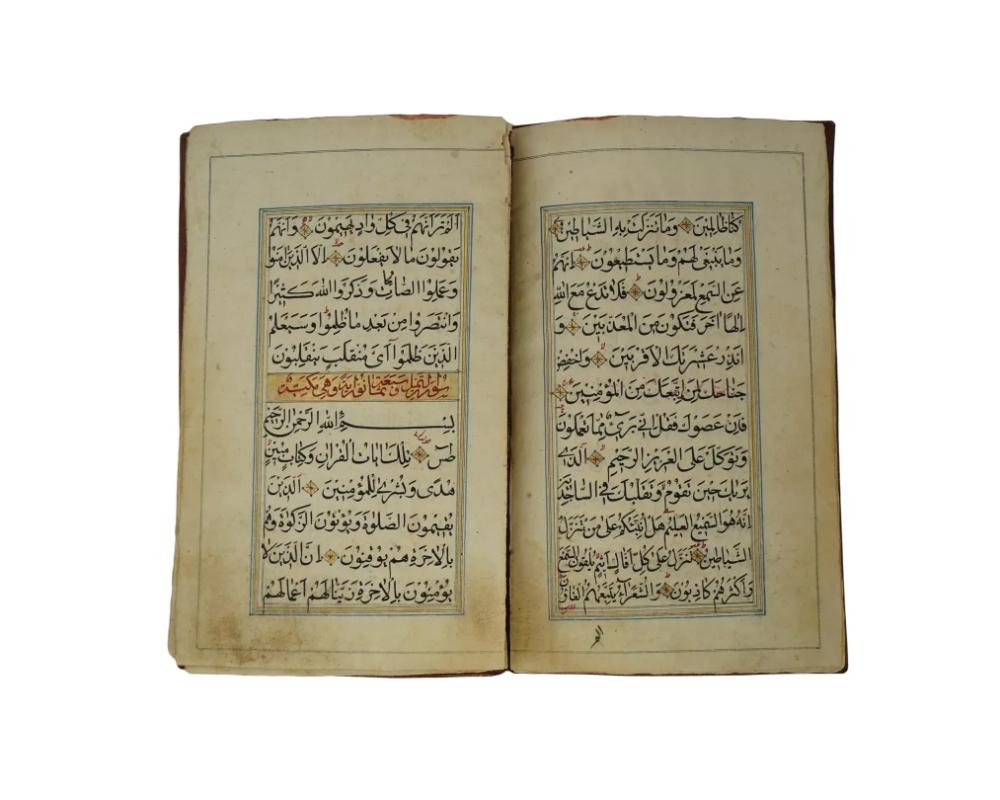 كنا ظالمين وما تنزلت به الشياطين
وما ينبغى لهم وما يستطيعون انهم
عن السمع لمعزولون فلا تدع مع الله
الها اخر فتكون من المعذبين و
انذر عشيرتك الاقربين واخفض
جناحك لمن اتبعك من المؤمنين
فان عصوك فقل انى برئ مما تعملون
وتوكل على العزيز الرحيم الذى
يريك حين تقوم وتقلبك فى الساجدين
انه هو السميع العليم هل انبئكم على من تنزل
الشياطين تنزل على كل افاك اثيم يلقون السمع
واكثرهم كاذبون والشعرآء يتبعهم الغاون
الم
الم تر انهم فى كل واد يهيمون وانهم
يقولون ما لا يفعلون الا الذين امنوا
وعملوا الصالحات وذكروا الله كثيرا
وانتصروا من بعد ما ظلموا وسيعلم
الذين ظلموا اى منقلب ينقلبون
سورة النمل وهى مكية
بسم الله الرحمن الرحيم
طس تلك ايات القران وكتاب مبين
هدى وبشرى للمؤمنين الذين
يقيمون الصلوة ويؤتون الزكوة وهم
بالاخرة هم يوقنون ان الذين لا
يؤمنون بالاخرة زينا لهم اعمالهم